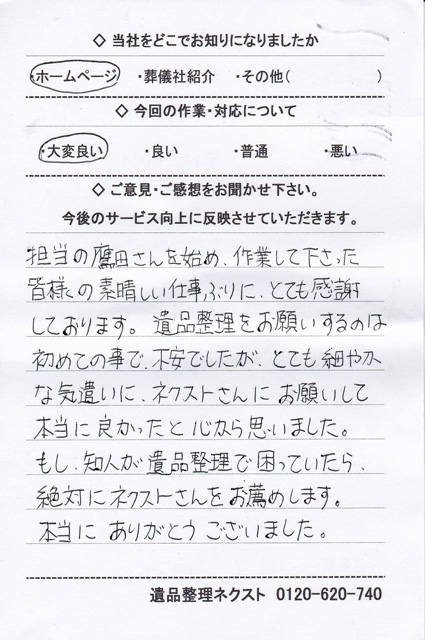 ◇ 当社をどこでお知りになりましたか
・ホームページ ・葬儀社紹介 ・その他( )
◇ 今回の作業・対応について
・大変良い ・良い ・普通 ・悪い
◇ ご意見・ご感想をお聞かせ下さい。
今後のサービス向上に反映させていただきます。
担当の鷹田さんを始め、作業して下さった
皆様の素晴しい仕事ぶりに、とても感謝
しております。遺品整理をお願いするのは
初めての事で、不安でしたが、とても細やか
な気遣いに、ネクストさんにお願いして
本当に良かったと心から思いました。
もし、知人が遺品整理で困っていたら、
絶対にネクストさんをお薦めします。
本当にありがとうございました。
遺品整理ネクスト 0120-620-740